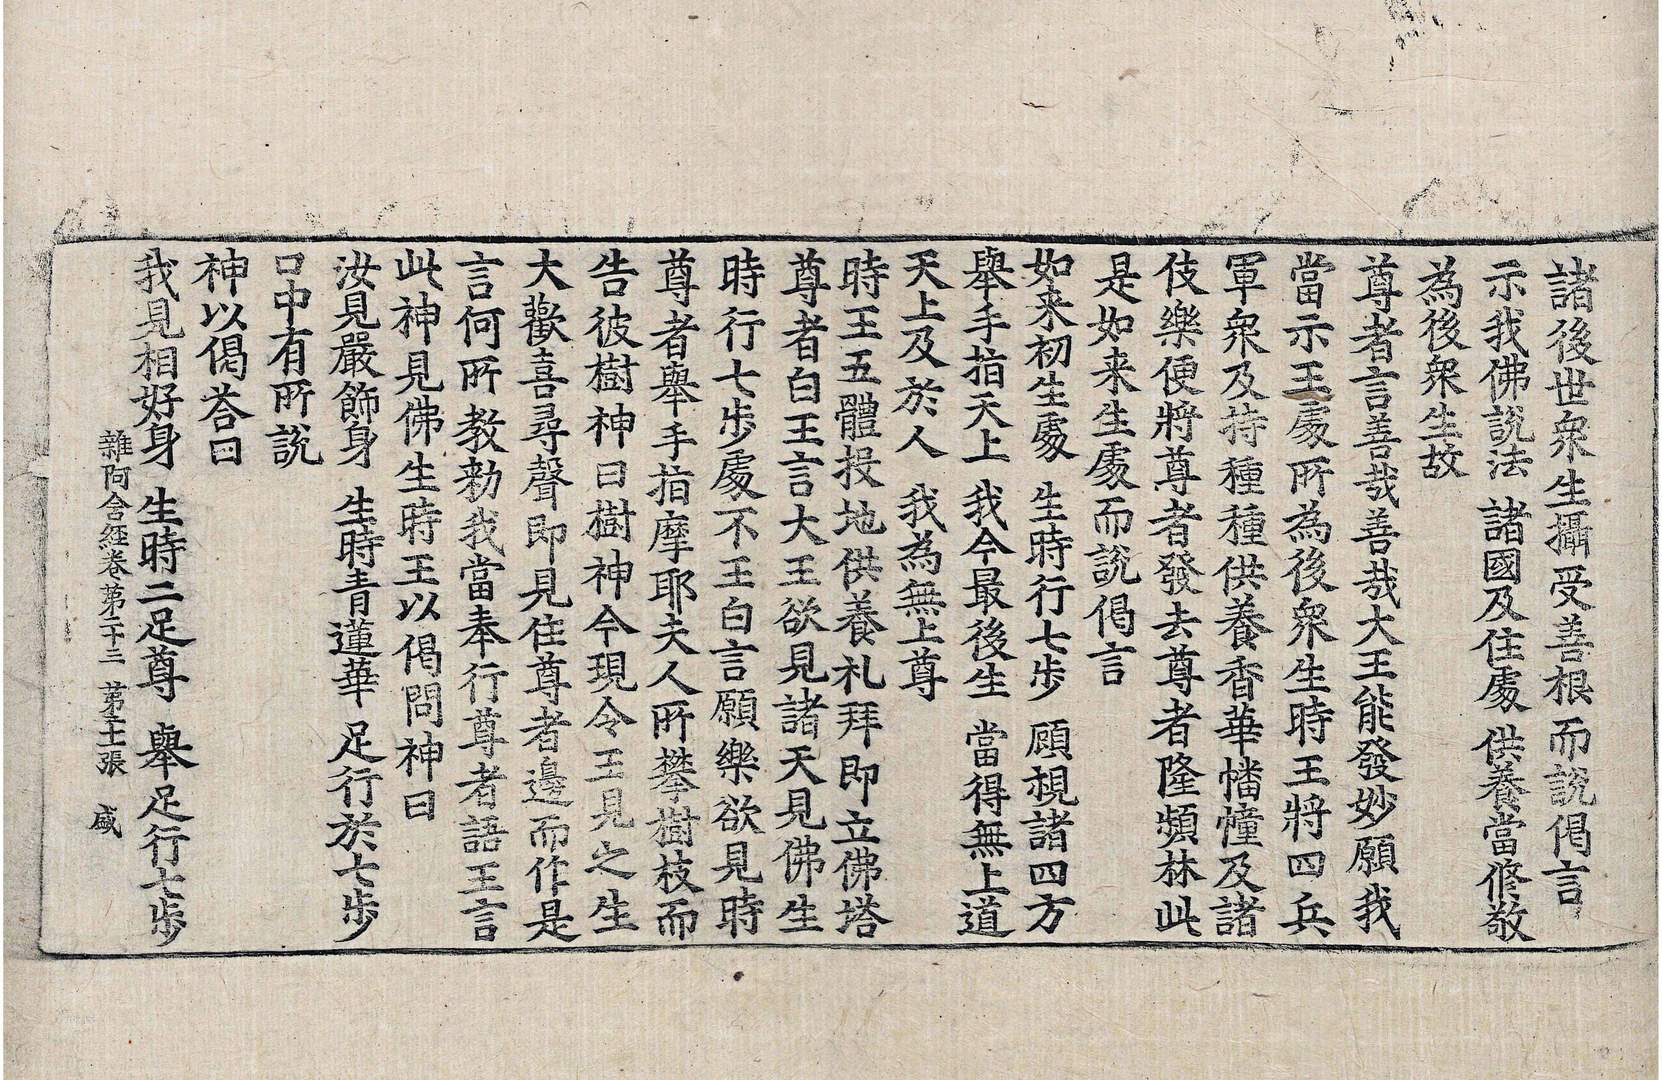 諸後世衆生攝受善根而說偈言
示我佛說法 諸國及住處 供養當修敬
為後衆生故
尊者言善哉善哉大王能發妙願我
當示王處所為後衆生時王將四兵
軍衆及持種種供養香華幡幢及諸
伎樂便將尊者發去尊者隆頻林此
是如来生處而說偈言
如来初生處 生時行七步 顧視諸四方
舉手指天上 我今最後生 當得無上道
天上及於人 我為無上尊
時王五體投地供養礼拜即立佛塔
尊者白王言大王欲見諸天見佛生
時行七步處不王白言願樂欲見時
尊者舉手指摩耶夫人所攀樹枝而
告彼樹神曰樹神今現令王見之生
大歡喜尋聲即見住尊者邊而作是
言何所教勑我當奉行尊者語王言
此神見佛生時王以偈問神曰
汝見嚴飾身 生時青蓮華 足行於七步
口中有所說
神以偈荅曰
我見相好身 生時二足尊 舉足行七步
雜阿含經卷第二十三 第十二張 盛